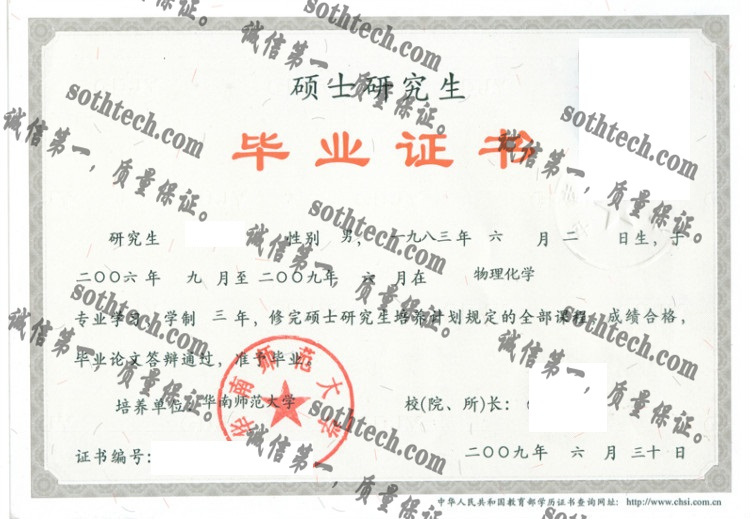 硕士研究生
毕业证书
研究生 性别 男， 一九八三年 六 月 二 日生，于
二〇〇六年 九 月至 二〇〇九年 六 月在 物理化学
专业学习，学制 三 年，修完硕士研究生培养计划规定的全部课程，成绩合格，
毕业论文答辩通过，准予毕业。
培养单位：华南师范大学 校(院、所)长：
证书编号： 二〇〇九年 六 月 三十 日
中华人民共和国教育部学历证书查询网址： http://www.chsi.com.cn
华南师范大学
sothtech.com
诚信第一，质量保证。
sothtech.com
诚信第一，质量保证。
sothtech.com
诚信第一，质量保证。
sothtech.com
诚信第一，质量保证。
sothtech.com
诚信第一，质量保证。
sothtech.com
诚信第一，质量保证。
sothtech.com
诚信第一，质量保证。
保证。